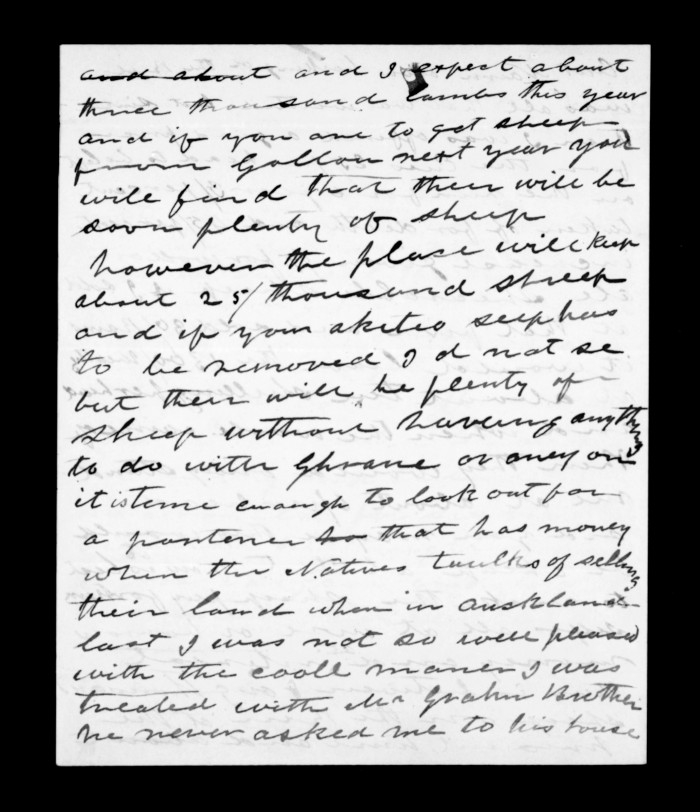 and about and I expect about
three thousand lambs this year
and if you are to get sheep
from Gollan next year you
will find that their will be
soon plenty of sheep
however the place will keep
about 25/ thousand sheep
and if your akiteo seep has
to be removed I d not se
but their will be plenty of
sheep without haveing anything
to do with Ghrane or aney on
it is teme enough to look out for
a partener that has money
when the Natives taulks of selling
their land when in auckland
last I was not so well pleased
with the cooll maner I was
treated with Mr Grahm Brother
he never asked me to his house